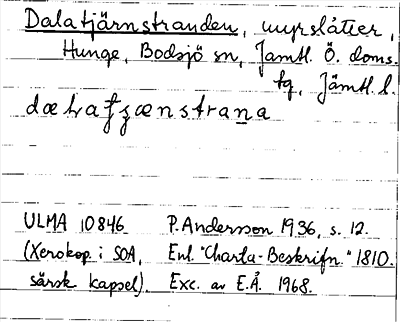 Dalatjärnstranden, myrslåtter,
Hunge, Bodsjö sn, Jämtl. Ö. doms.
tg, Jämtl. l.
ULMA 10846. P. Andersson 1936, s. 12.
(Xerokop. i SOA, Enl. "Charta-Beskrifn." 1810.
särsk kapsel). Exc. av E.Å. 1968.